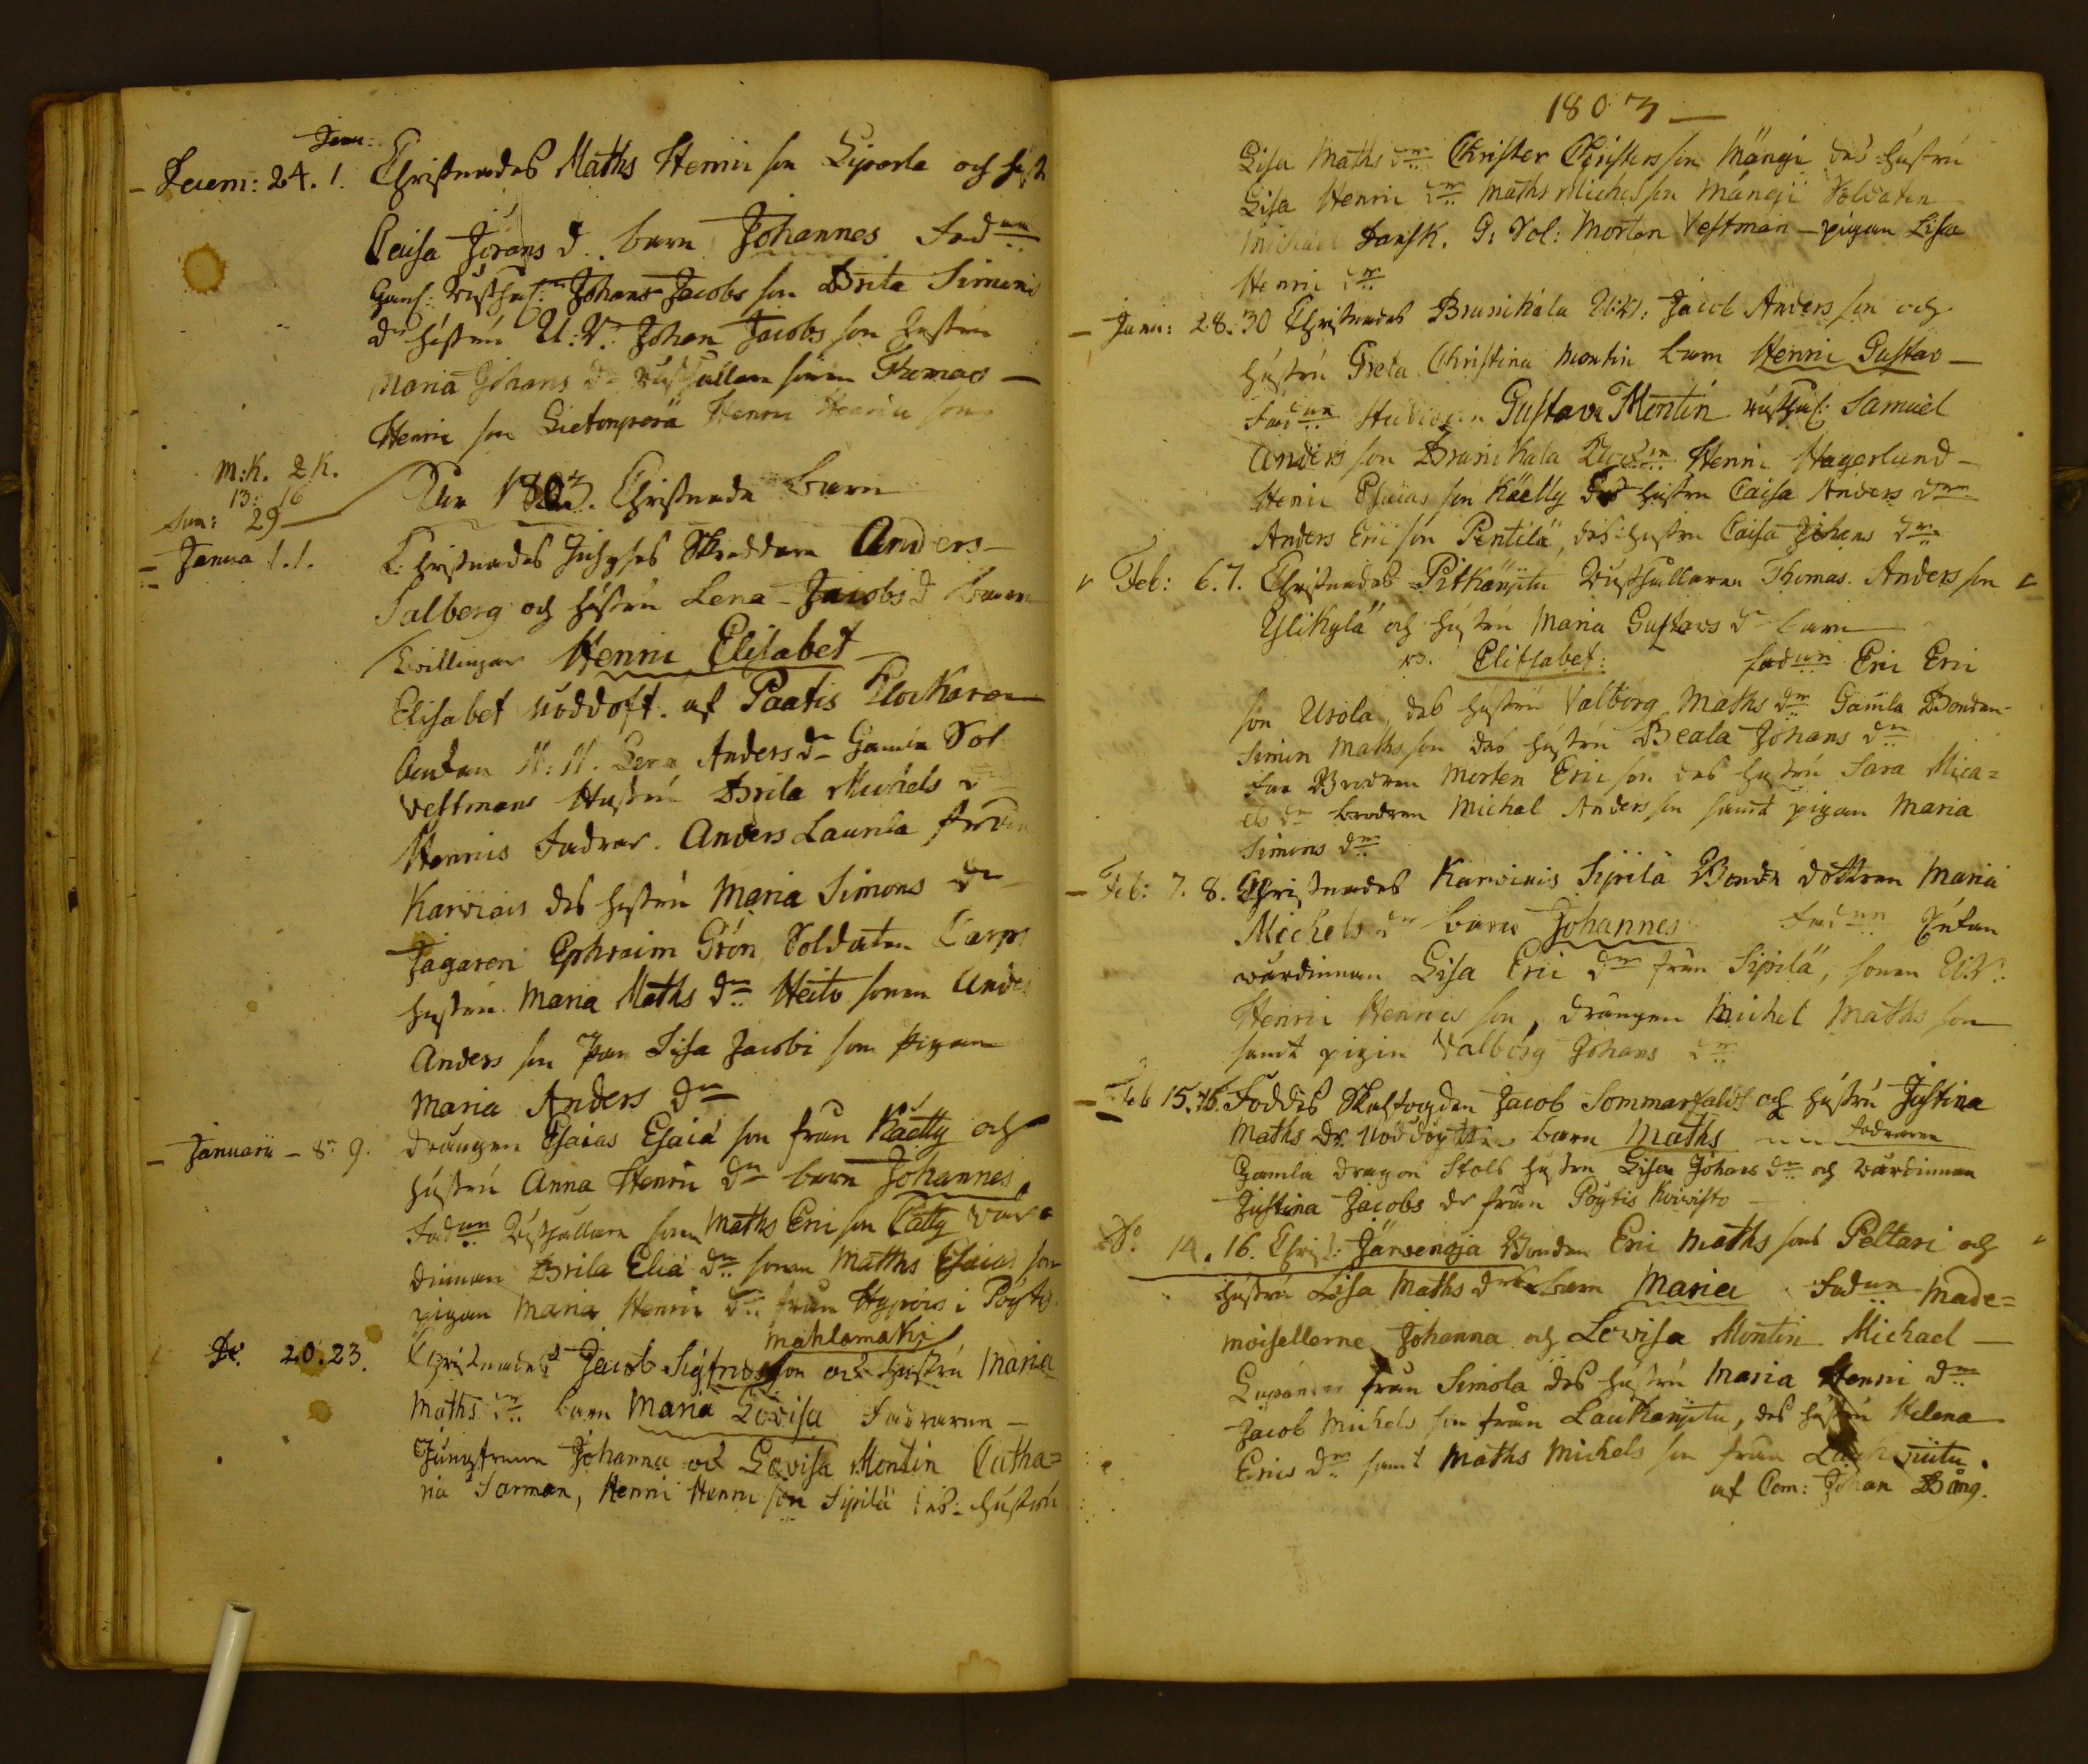 Janu:
Decem: 24. 1. Christnades Maths Henric son Siporla och hust
Caisa Jörans d. barn Johannes Fadun
Johans Jacobs son Brita Simons
dr hustru U. V. Johan Jacobs son hustru
Maria Johans dr Rusthållare sonen Thomas
Henric son Sietonperä Henric Henric son
M:K. 2 K.
13: 16
Sum: 29
1803. Christnade barn
Janua 1. 1. Christnades Skreddare Anders
Salberg och hustru Lena Jacobs d barn
Tvillingar Henric Elisabet
Elisabet nöddöpt. af Paatis Klockaren
N. N. Lena Anders dr Gamla Sol
Vestmans Hustru Brita Michels d
Henrics Fadrar. Anders Laurila
Karviais des hustru Maria Simons dr
Jägaren Ephraim Grön Soldaten Carps
hustru Maria Maths dr Heito sonen Ande
Anders son Lisa Jacobi son pigan
Maria Anders dr
Januarii - 8. 9. drängen Esaias Esaiæ son från Käetty och
hustru Anna Henric dr barn Johannes
Fadun Rusthållare sonen Maths Eric son Cätty
dinnan Brita Eliæ dr sonen Maths Esaias son
pigan Maria Henric dr från Hypois i Pöytis
Mahlamaki
Do 20. 23. Christnades Jacob Sigfrids son och hustru Maria
Maths dr barn Maria Lovisa Fadrarne
Jungfruna Johanna och Lovisa Montin Catha=
ria Sarman, Henric Henric son Sipilä des hustru
1803
Lisa Maths dr Christer Christers son Mängi des hustru
Lisa Henric dr Maths Michels son Mängi Soldaten
Michael Dansk. G: Sol: Morten Vestman - pigan Lisa
Henric dr
Janu: 28. 30 Christnades Brunikala Jacob Anders son och
hustru Greta Christina Montin barn Henric Gustav
Fadun Gustava Montin rusthål: Samuel
Anders son Brunikala Henric Hagerlund
Henric Esaias son Käetty des hustru Caisa Anders dr
Anders Eric son Pentilä, des hustru Caisa Johans dr
Feb: 6. 7. Christnades Pitkänjitu Rusthållaren Thomas Anders son
Ylikylä och hustru Maria Gustavs dr barn
Elitsabet: fadun Eric Eric
son Urola, des hustru Valborg Maths dr Gamla Bonden
Simon Maths son des hustru Beata Johans dr
Brodren Morten Eric son des hustru Sara Mica=
els dr brodren Michel Anders son samt pigan Maria
Simons dr
Feb: 7. 8. Christnades Karviais Sipilä Bonde dottren Maria
Michels dr barn Johannes Fadun
wärdinnan Lisa Eric dr från Sipilä, sonen
Henric Henrics son, drängen Michel Maths son
samt pigan Valborg Johans dr
Feb 15. 16. Föddes Skalfogden Jacob Sommarfalks och hustru Justina
Maths dr nöddöpt barn Maths fadrarne
Gamla Dragon Stols hustru Lisa Johans dr och wärdinnan
Justina Jacobs dr från Pöytis Koivisto
Do 14. 16. Christ: Järvenoja Bonden Eric Maths sons Peltari och
hustru Lisa Maths drs barn Maria Fadun Made=
moisellerne Johanna och Lovisa Montin Michael
från Simola des hustru Maria Henric dr
Jacob Michels son från Laukanjitu, des hustru Helena
Erics dr samt Maths Michels son från
af Com: Johan Bång.